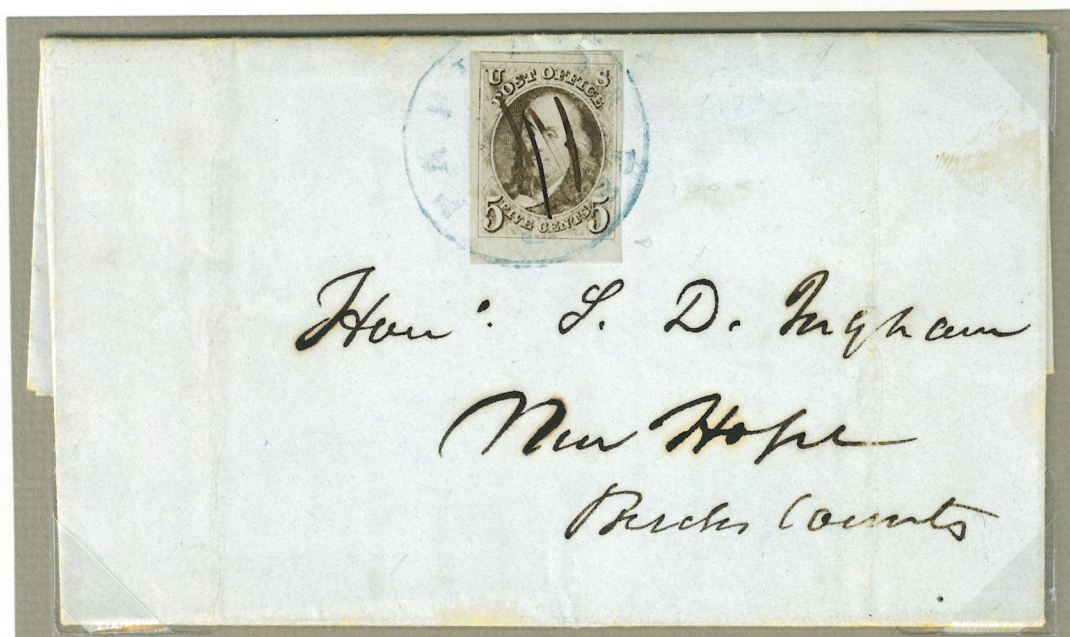 U S
POST OFFICE
5 FIVE CENTS 5
Hon: S. D. Ingham
New Hope
Bucks County